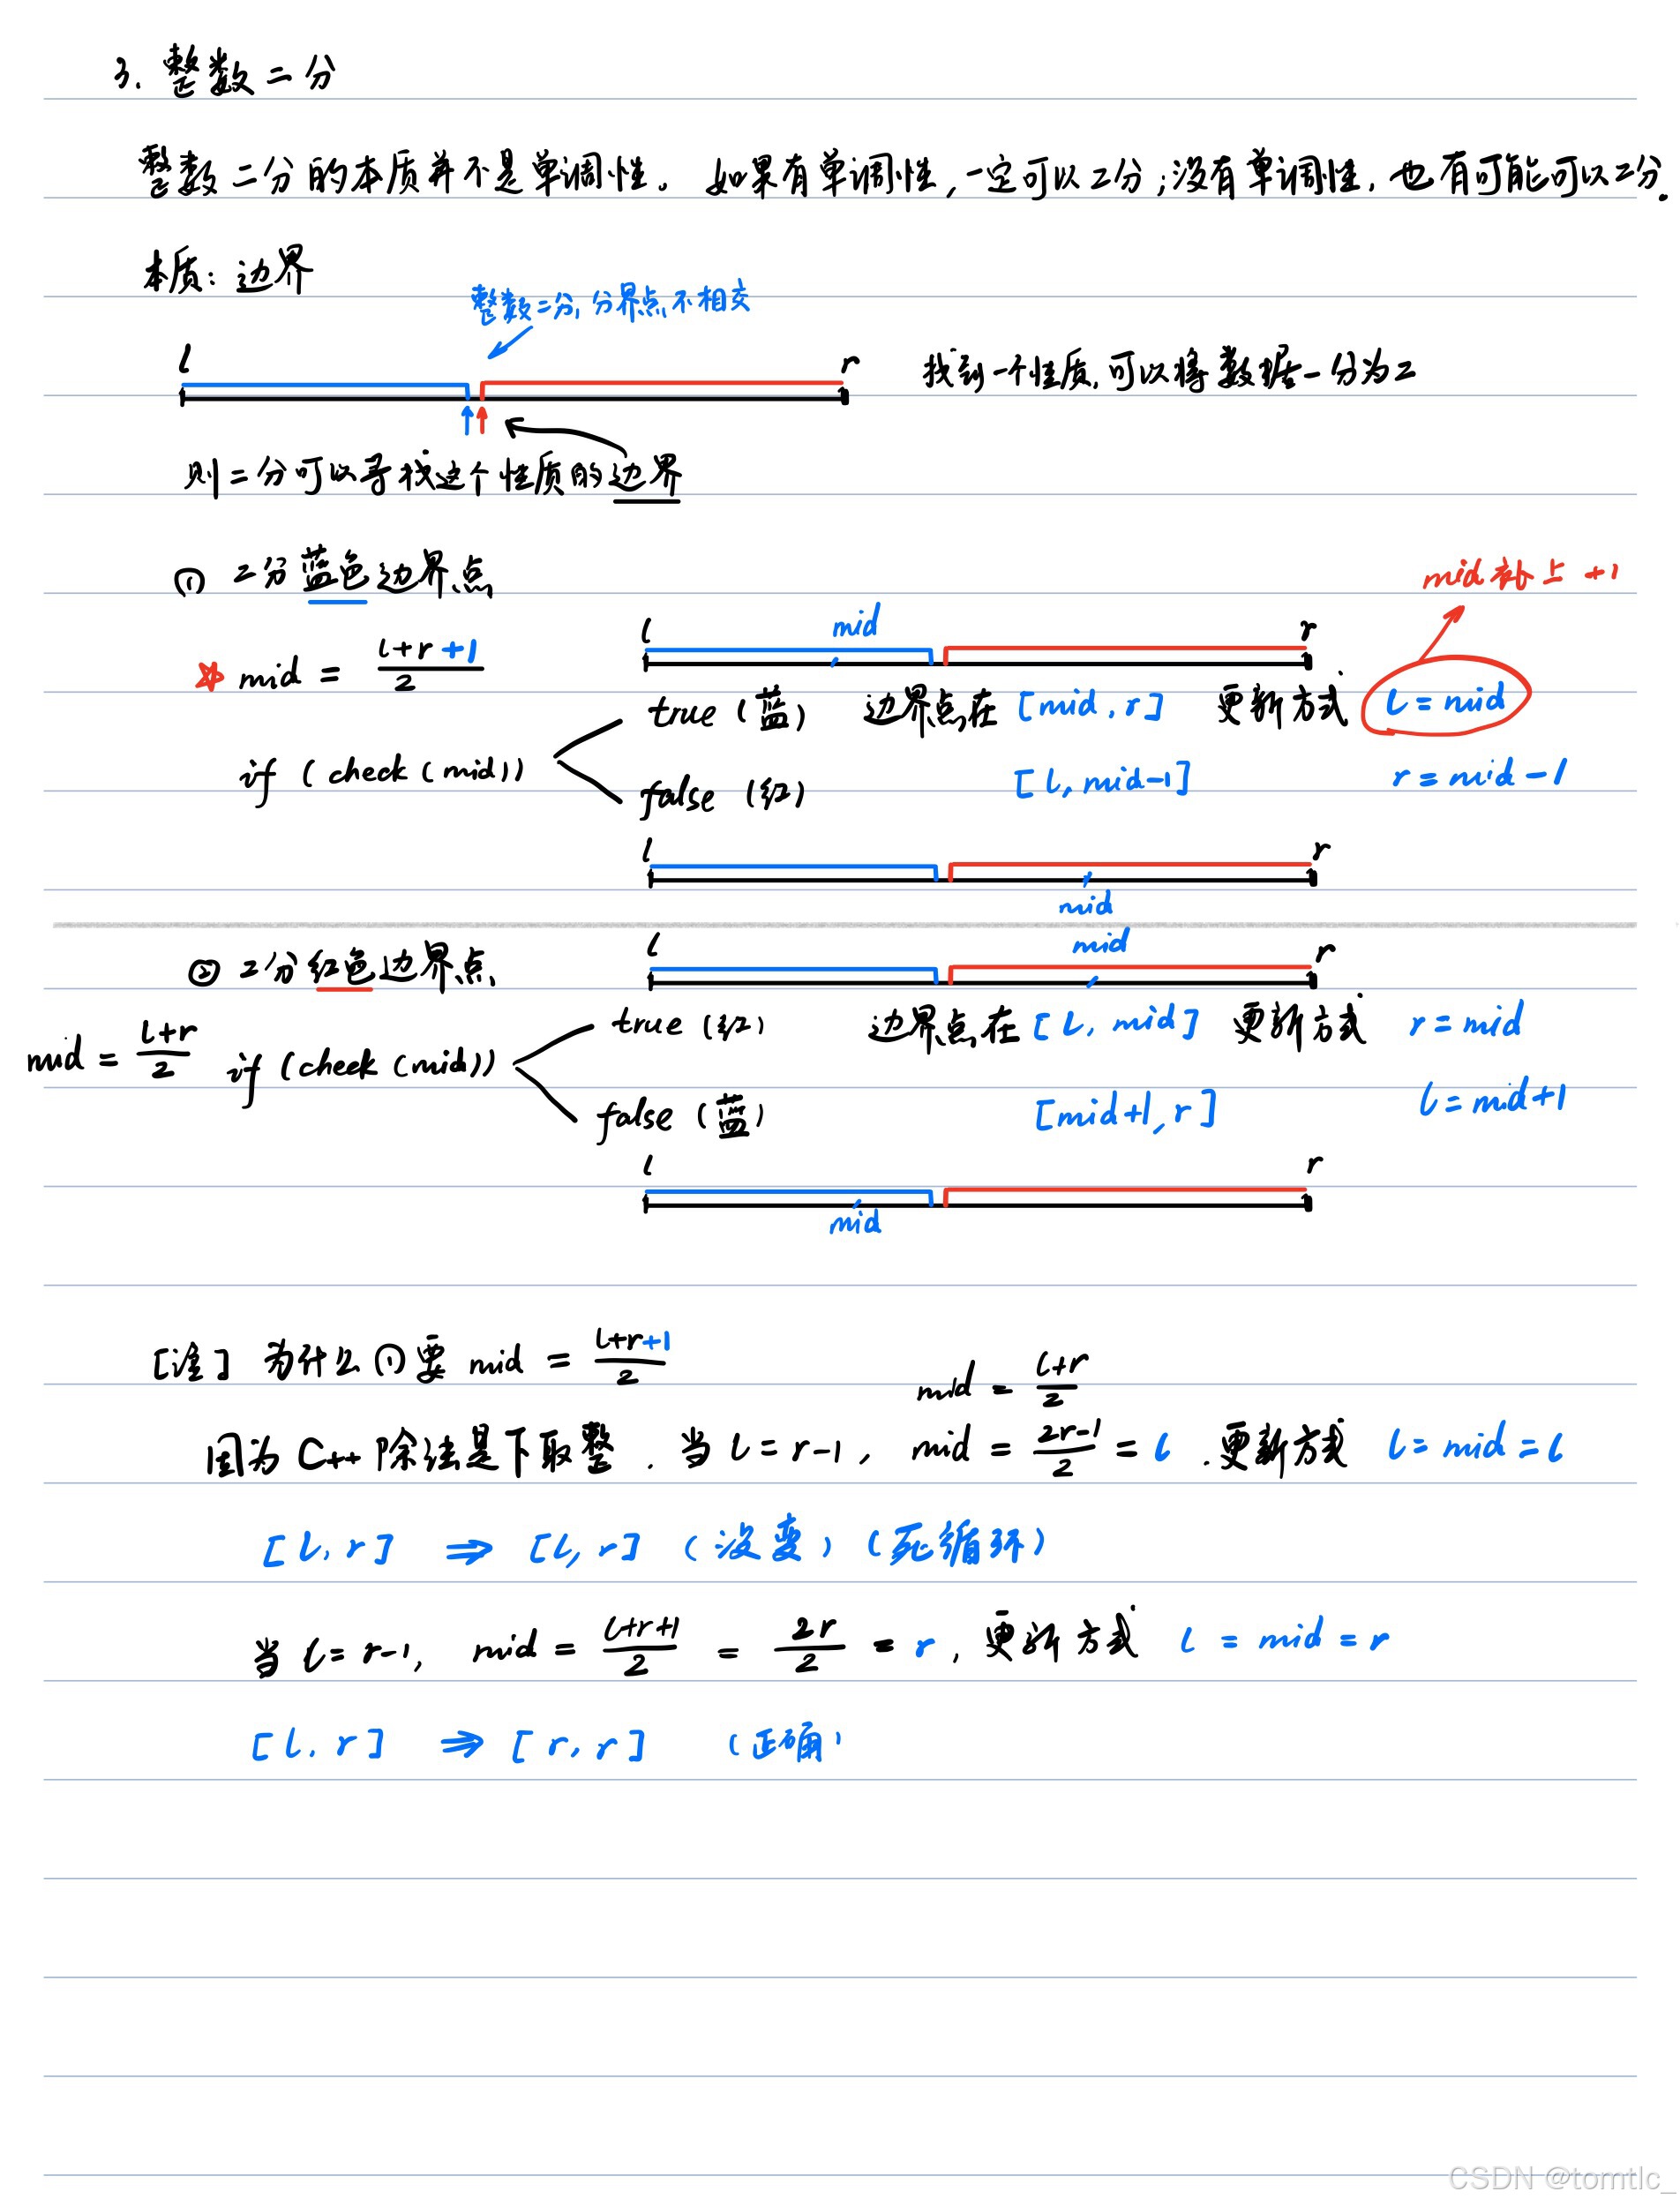 3. 整数二分
整数二分的本质并不是单调性。如果有单调性,一定可以二分;没有单调性,也有可能可以二分.
本质: 边界
整数二分,分界点不相交
l r 找到一个性质,可以将数据一分为二
则二分可以寻找这个性质的边界
① 二分蓝色边界点
mid补上+1
l mid r
mid = (l+r+1)/2
true (蓝) 边界点在 [mid, r] 更新方式 l = mid
if (check(mid))
false (红) [l, mid-1] r = mid-1
l r
mid
② 二分红色边界点
l mid r
mid = (l+r)/2 if (check(mid))
true (红) 边界点在 [l, mid] 更新方式 r = mid
false (蓝) [mid+1, r] l = mid+1
l r
mid
[注] 为什么①要 mid = (l+r+1)/2
mid = (l+r)/2
因为 C++ 除法是下取整. 当 l = r-1, mid = (2r-1)/2 = l. 更新方式 l = mid = l
[l, r] ⇒ [l, r] (没变) (死循环)
当 l = r-1, mid = (l+r+1)/2 = 2r/2 = r, 更新方式 l = mid = r
[l, r] ⇒ [r, r] (正确)
CSDN @tomtlc_